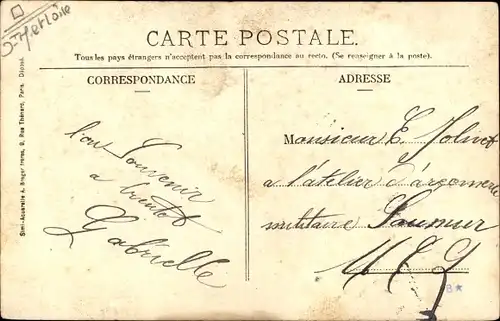 CARTE POSTALE.
Tous les pays étrangers n'acceptent pas la correspondance au recto. (Se renseigner à la poste).
CORRESPONDANCE
ADRESSE
Simi-Aquarelle A. Breger frères, 9, Rue Thénard, Paris. Déposé.
bon Souvenir
a bientot
Gabrielle
Monsieur E. Jolivet
a l'atelier d'arçonnerie
militaire Saumur
M & L
B*